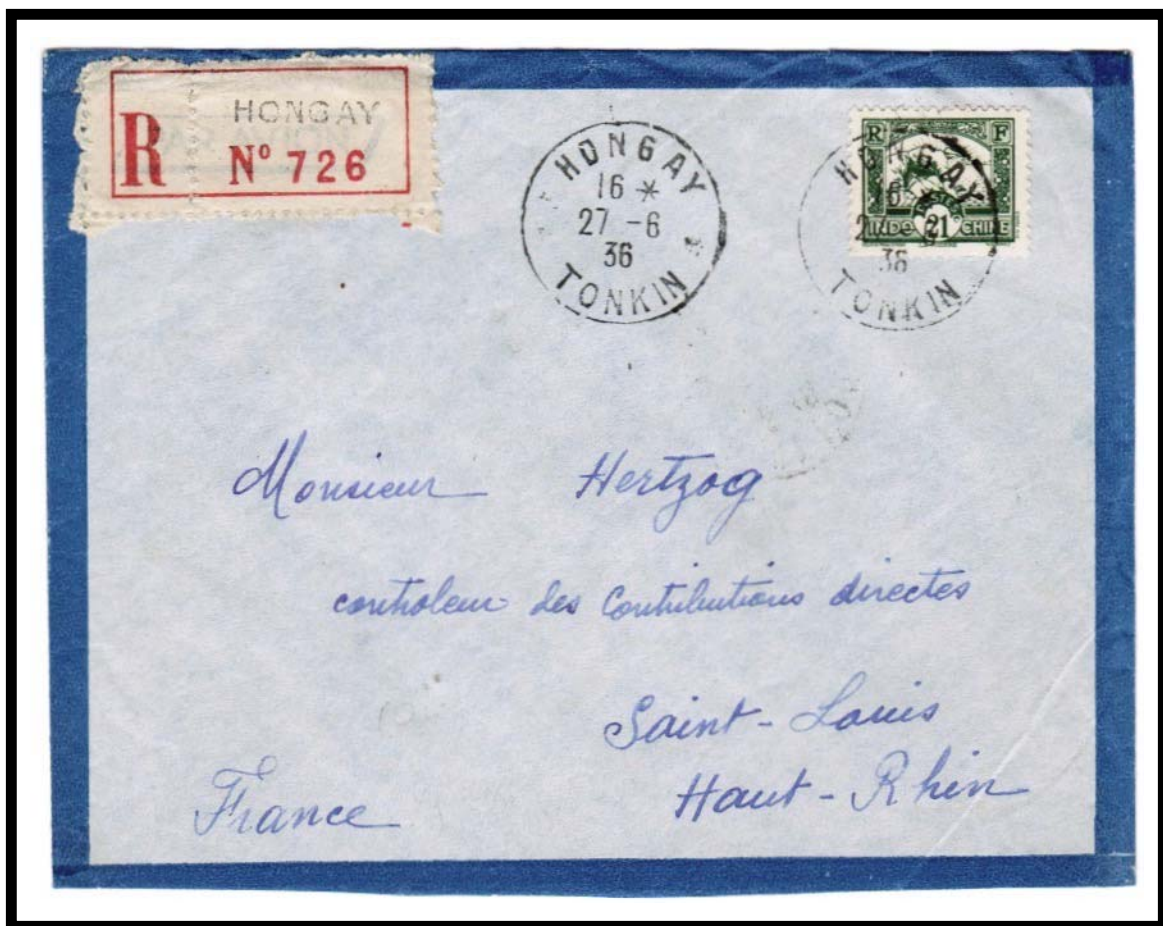 HONGAY
R N° 726
HONGAY
16 *
27 -6
36
TONKIN
R F
POSTES
INDO 21 CHINE
HONGAY
36
TONKIN
Monsieur Hertzog
controleur des Contributions directes
Saint-Louis
Haut-Rhin
France